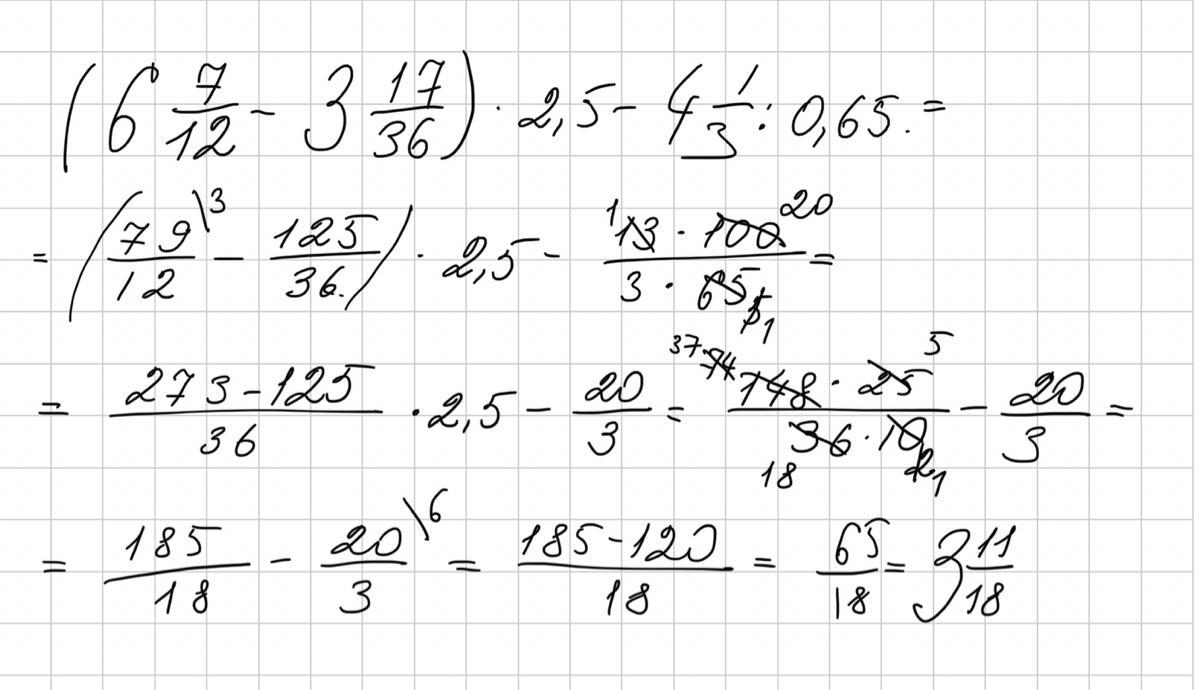 (6 7/12 - 3 17/36) · 2,5 - 4 1/3 : 0,65. =
= (79/12 \3 - 125/36.) · 2,5 - 13 · 100/3 · 65 = 1 20 5 1
= 273 - 125/36 · 2,5 - 20/3 = 148 · 25/36 · 10 - 20/3 = 37 74 5 18 2 1
= 185/18 - 20/3 \6 = 185 - 120/18 = 65/18 = 3 11/18